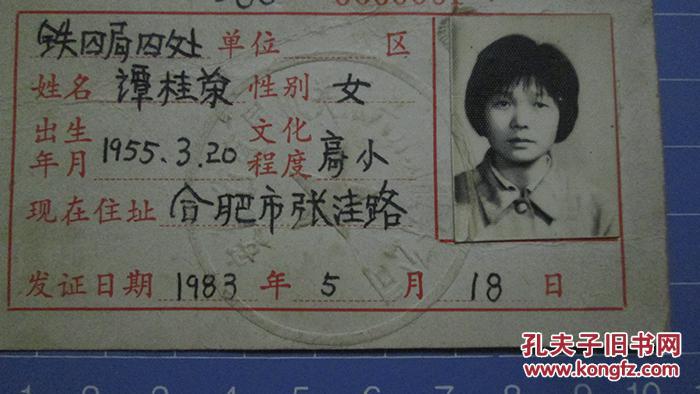 铁四局四处 单位 区
姓名 谭桂荣 性别 女
出生年月 1955.3.20 文化程度 高小
现在住址 合肥市张洼路
发证日期 1983 年 5 月 18 日
孔夫子旧书网
www.kongfz.com
1 2 3 4 5 6 7 8 9 10